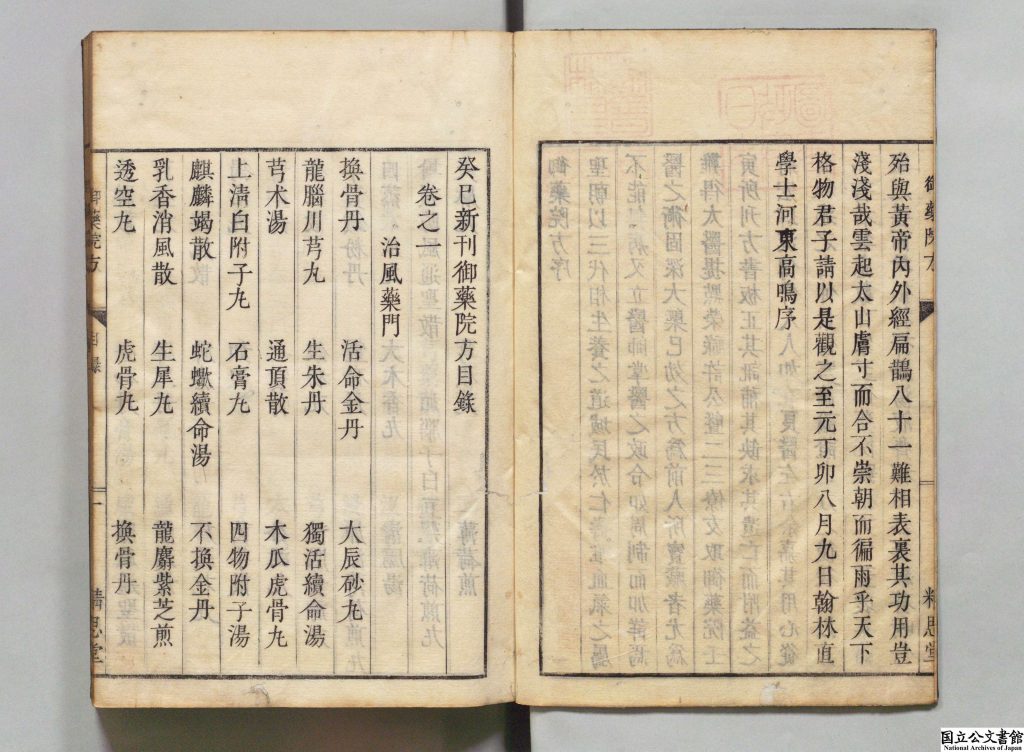 殆與黃帝內外經扁鵲八十一難相表裏其功用豈
淺淺哉雲起太山膚寸而合不崇朝而徧雨乎天下
格物君子請以是觀之至元丁卯八月九日翰林直
學士河東高鳴序
癸巳新刊御藥院方目錄
卷之一
治風藥門
換骨丹 活命金丹 大辰砂丸
龍腦川芎丸 生朱丹 獨活續命湯
芎朮湯 通頂散 木瓜虎骨丸
上清白附子丸 石膏丸 四物附子湯
麒麟竭散 蛇蠍續命湯 不換金丹
乳香消風散 生犀丸 龍麝紫芝煎
透空丸 虎骨丸 換骨丹
御藥院方 目錄 一 精思堂
国立公文書館
National Archives of Japan